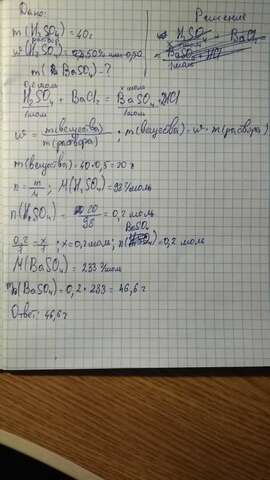 Дано:
Решение
m(H₂SO₄) = 40г
раствор
w(H₂SO₄) = 50% или 0,50
m(BaSO₄) - ?
H₂SO₄ + BaCl₂ =
BaSO₄ + HCl
1моль
0,2 моль x моль
H₂SO₄ + BaCl₂ = BaSO₄ + 2HCl
1моль 1моль
w = m(вещества) / m(раствора) ; m(вещества) = w · m(раствора)
m(вещества) = 40 · 0,5 = 20 г
n = m/M ; M(H₂SO₄) = 98 г/моль
n(H₂SO₄) = 20/98 = 0,2 моль
0,2/1 = x/1 ; x = 0,2 моль; n(BaSO₄) = 0,2 моль
M(BaSO₄) = 233 г/моль
m(BaSO₄) = 0,2 · 233 = 46,6 г
Ответ: 46,6 г